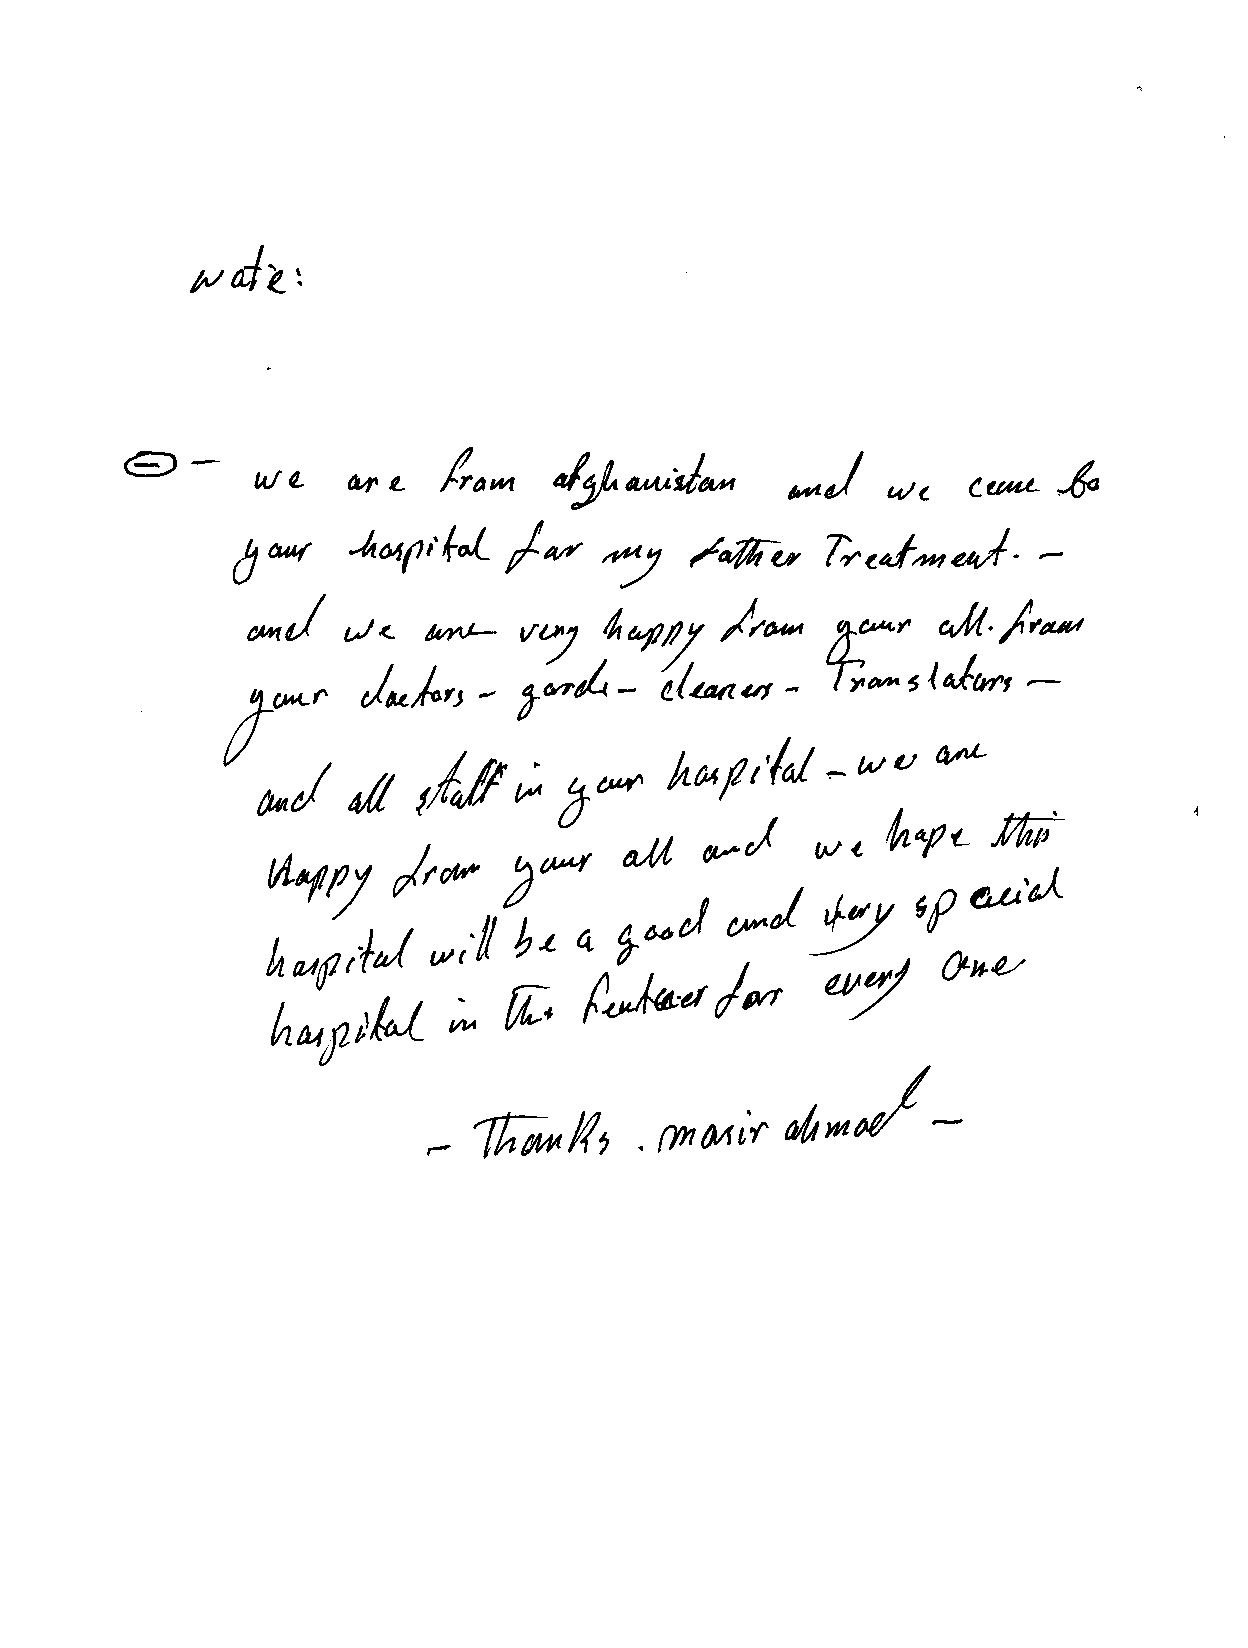 note:
we are from afghanistan and we came to
your hospital for my father Treatment. -
and we are very happy from your all. from
your doctors - gards - cleaners - Translators -
and all staff in your hospital - we are
Happy from your all and we hope this
hospital will be a good and very special
hospital in the feuture for every one
- Thanks . masir ahmad -